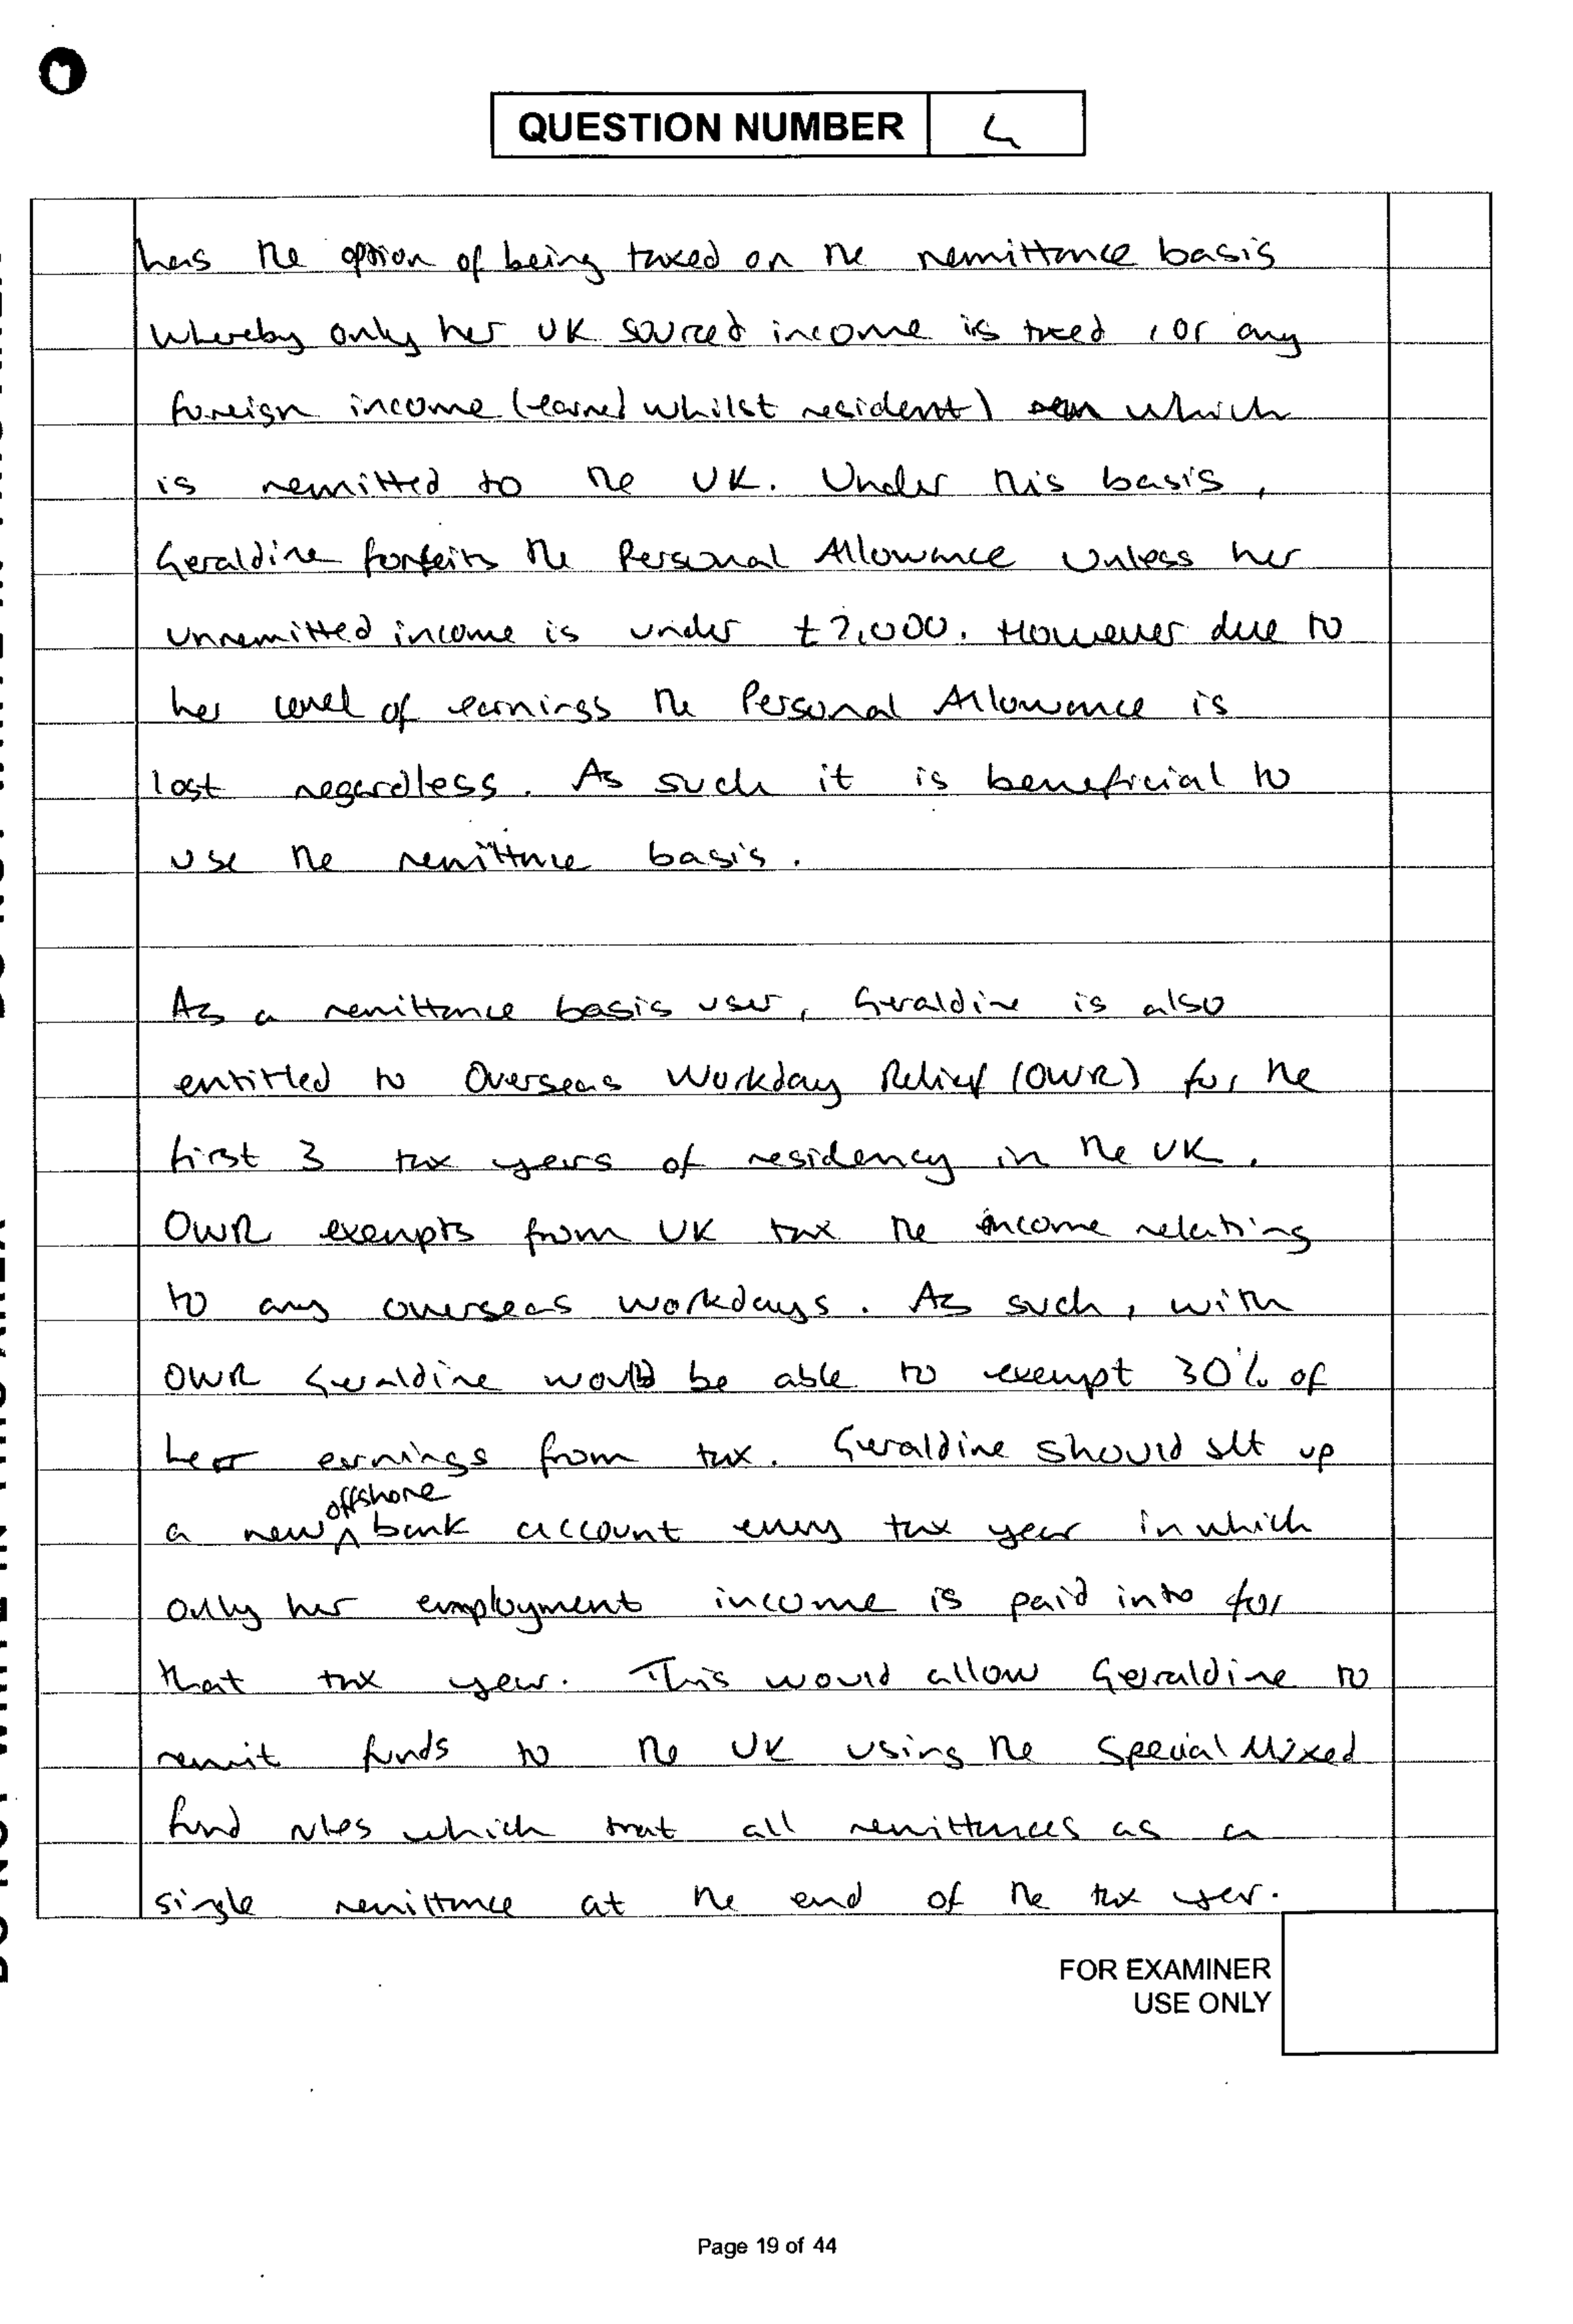 QUESTION NUMBER 4
has the option of being taxed on the remittance basis
whereby only her UK sourced income is taxed, or any
foreign income (earned whilst resident) which
is remitted to the UK. Under this basis,
Geraldine forfeits the Personal Allowance unless her
unremitted income is under £2,000. However due to
her level of earnings the Personal Allowance is
lost regardless. As such it is beneficial to
use the remittance basis.
As a remittance basis user, Geraldine is also
entitled to Overseas Workday Relief (OWR) for the
first 3 tax years of residency in the UK.
OWR exempts from UK tax the income relating
to any overseas workdays. As such, with
OWR Geraldine would be able to exempt 30% of
her earnings from tax. Geraldine should set up
a new offshore bank account every tax year in which
only her employment income is paid into for
that tax year. This would allow Geraldine to
remit funds to the UK using the Special Mixed
fund rules which treat all remittances as a
single remittance at the end of the tax year.
FOR EXAMINER
USE ONLY
Page 19 of 44